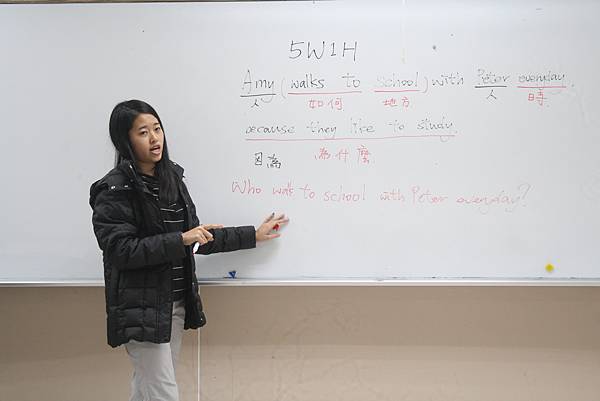 5W1H
Amy (walks to school) with Peter everyday.
人 如何 地方 人 時
because they like to study.
因為 為什麼
Who walks to school with Peter everyday?